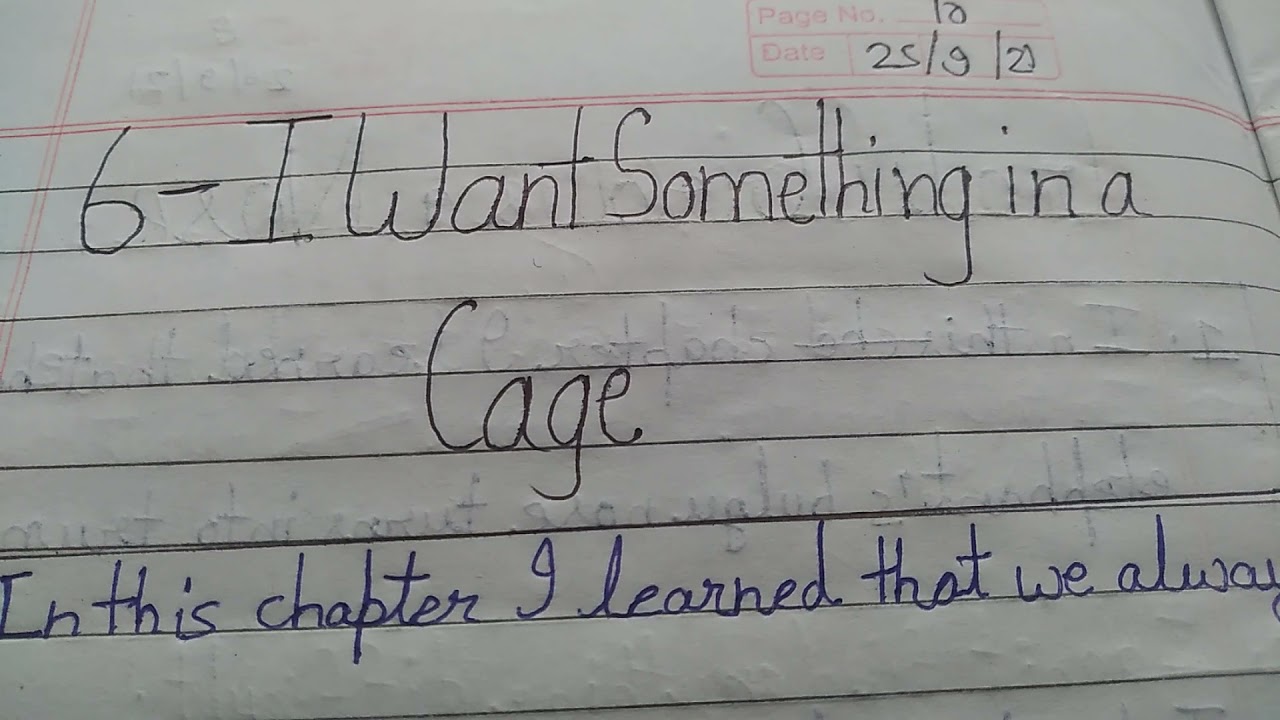 Page No. 10
Date 25/9/21
6-I Want Something in a
Cage
In this chapter I learned that we alway